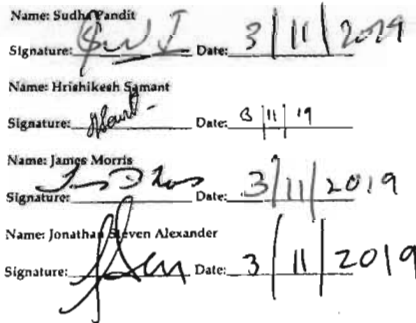 Name: Sudha Pandit
Signature: Date: 3/11/2019
Name: Hrishikesh Samant
Signature: Date: 3/11/19
Name: James Morris
Signature: Date: 3/11/2019
Name: Jonathan Steven Alexander
Signature: Date: 3/11/2019